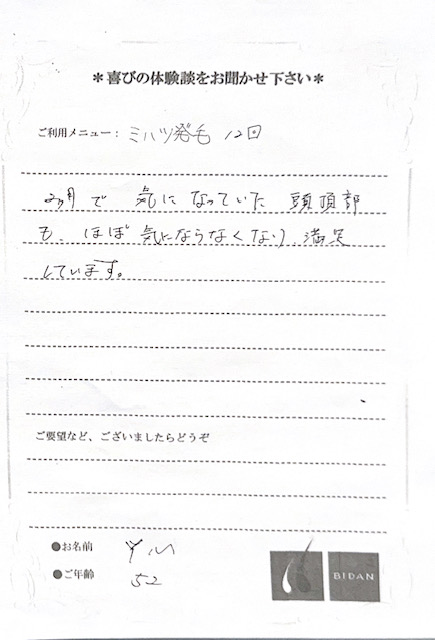 ＊喜びの体験談をお聞かせ下さい＊
ご利用メニュー： ミハツ発毛 12回
2ヶ月で 気になっていた 頭頂部
も、ほぼ気にならなくなり、満足
しています。
ご要望など、ございましたらどうぞ
●お名前 Y M
●ご年齢 52
BIDAN